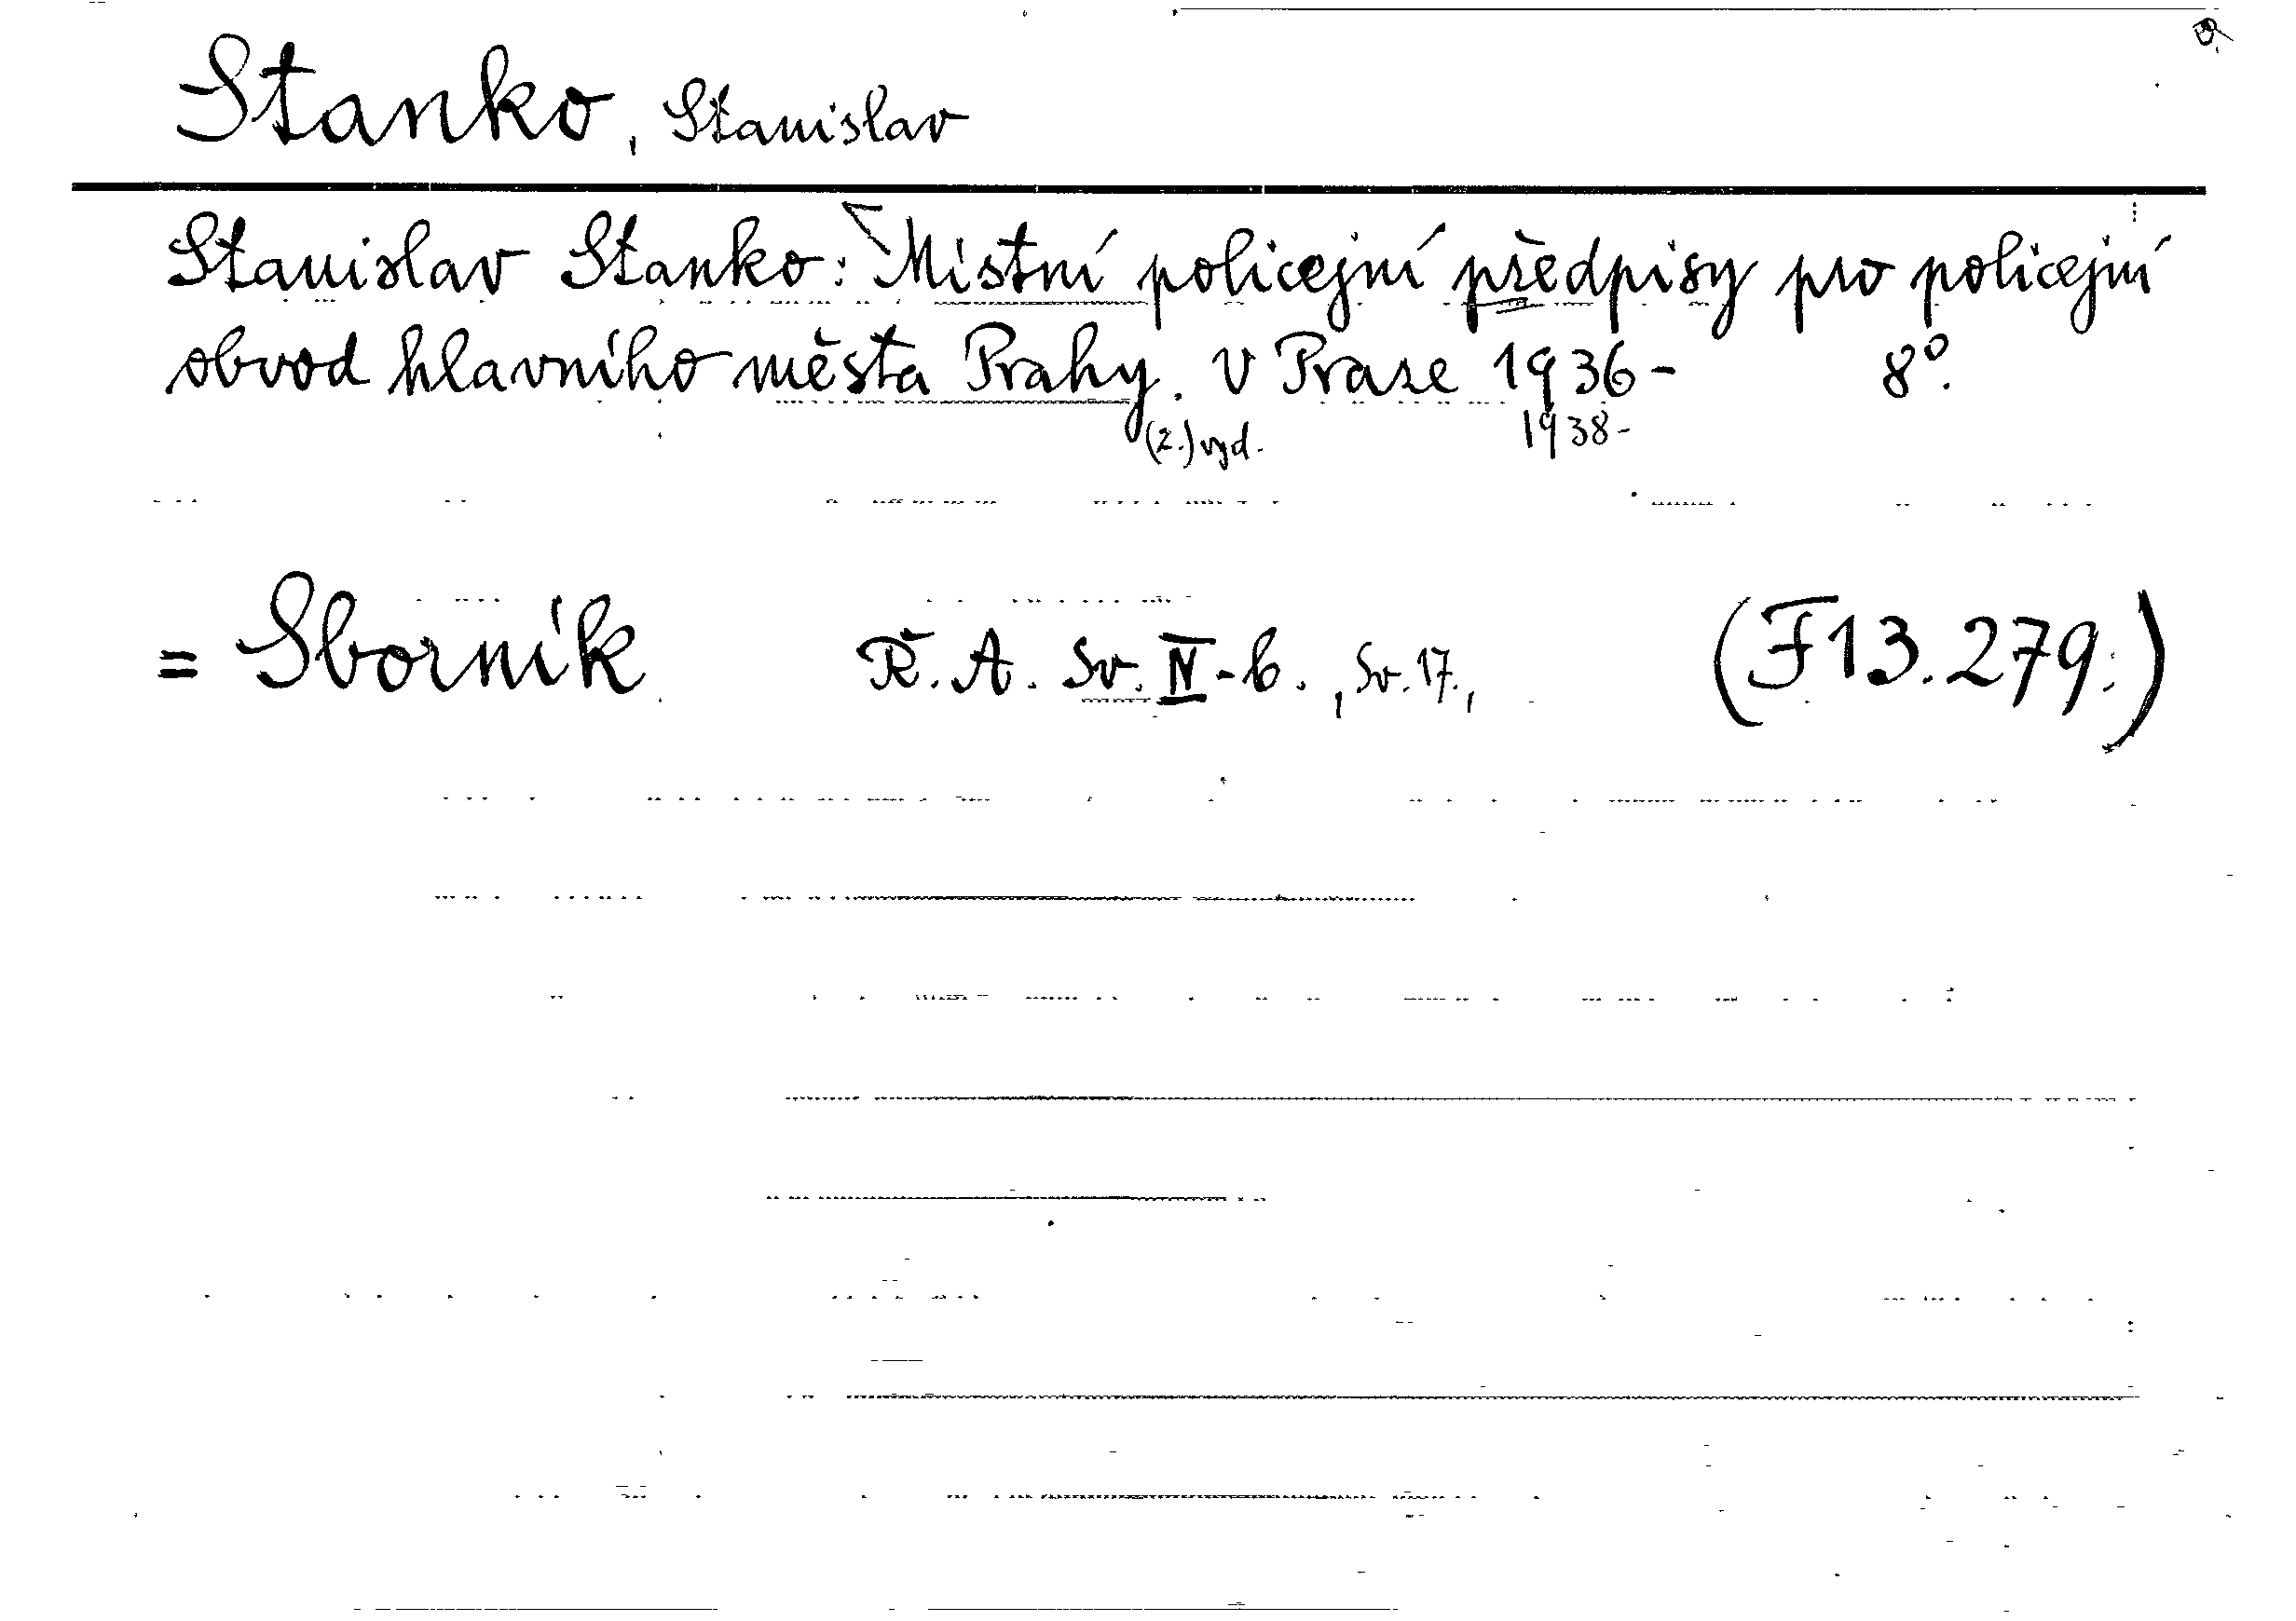 Stanko, Stanislav
Stanislav Stanko: Místní policejní předpisy pro policejní
obvod hlavního města Prahy. V Praze 1936- 8°.
(2.) vyd. 1938-
= Sborník Ř. A. Sv. IV-b., Sv. 17., (F 13.279.)